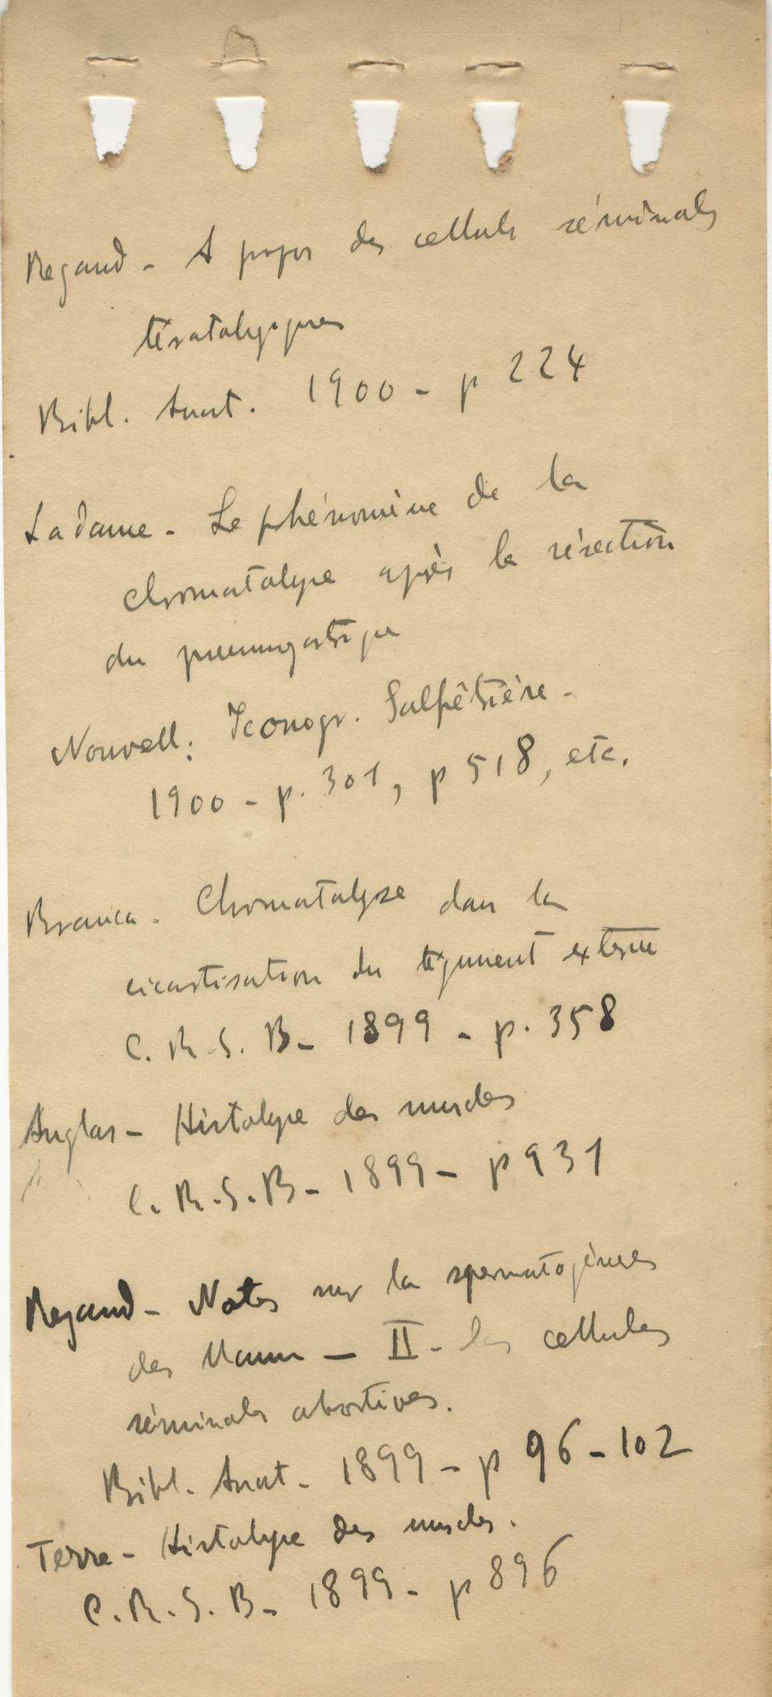 Regaud - A propos des cellules séminales
tératologiques
Bibl. Anat. 1900 - p 224
Ladame - Le phénomène de la
chromatolyse après la résection
du pneumogastrique
Nouvell. Iconogr. Salpêtrière -
1900 - p. 301, p 518, etc.
Branca - Chromatolyse dans la
cicatrisation du tégument externe
C. R. S. B - 1899 - p. 358
Anglas - Histolyse des muscles
C. R. S. B - 1899 - p 931
Regaud - Notes sur la spermatogénèse
des Mamm - II - les cellules
séminales abortives.
Bibl. Anat - 1899 - p 96 - 102
Terre - Histolyse des muscles.
C. R. S. B - 1899 - p 896